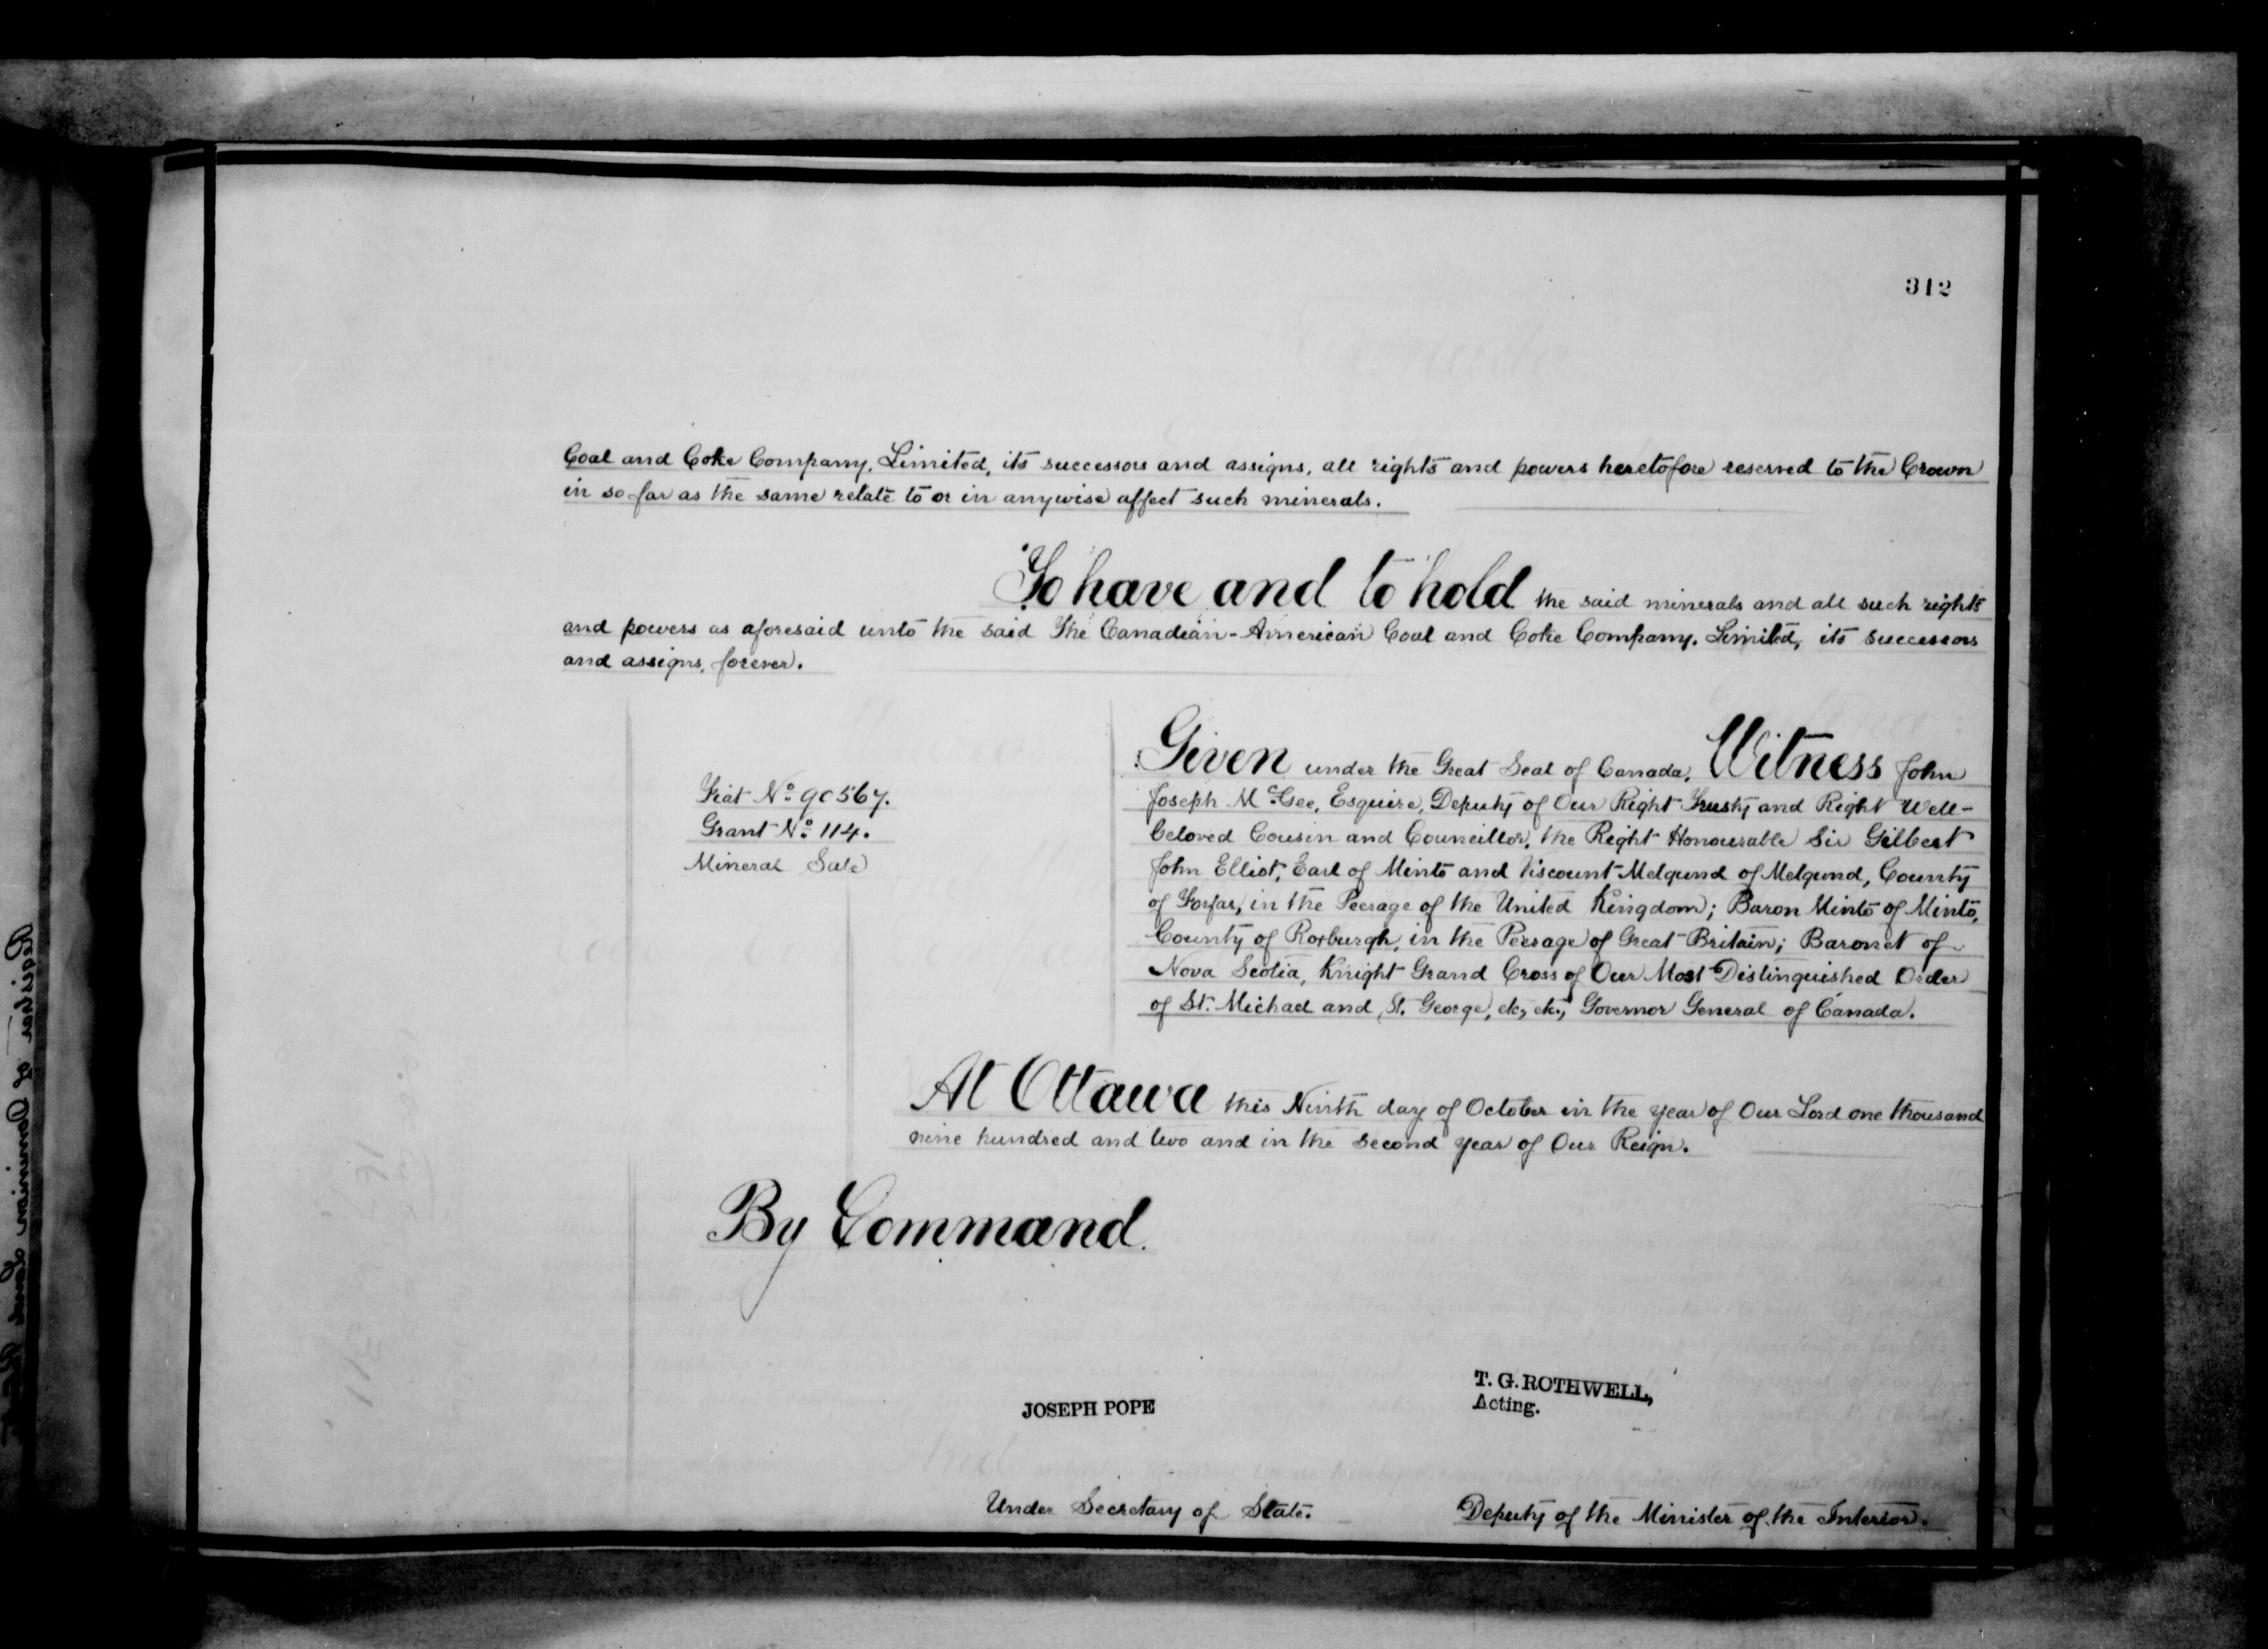 312
Coal and Coke Company, Limited, its successors and assigns, all rights and powers heretofore reserved to the Crown
in so far as the same relate to or in anywise affect such minerals.
To have and to hold the said minerals and all such rights
and powers as aforesaid unto the said The Canadian-American Coal and Coke Company, Limited, its successors
and assigns, forever.
Given under the Great Seal of Canada. Witness John
Joseph McGee, Esquire, Deputy of Our Right Trusty and Right Well-
beloved Cousin and Councillor, the Right Honourable Sir Gilbert
John Elliot, Earl of Minto and Viscount Melgund of Melgund, County
of Forfar, in the Peerage of the United Kingdom; Baron Minto of Minto,
County of Roxburgh, in the Peerage of Great Britain; Baronet of
Nova Scotia, Knight Grand Cross of Our Most Distinguished Order
of St. Michael and St. George, etc, etc., Governor General of Canada.
Fiat No. 90567.
Grant No. 114.
Mineral Sale
At Ottawa this Ninth day of October in the year of Our Lord one thousand
nine hundred and two and in the second year of Our Reign.
By Command.
JOSEPH POPE
Under Secretary of State.
T. G. ROTHWELL,
Acting.
Deputy of the Minister of the Interior.